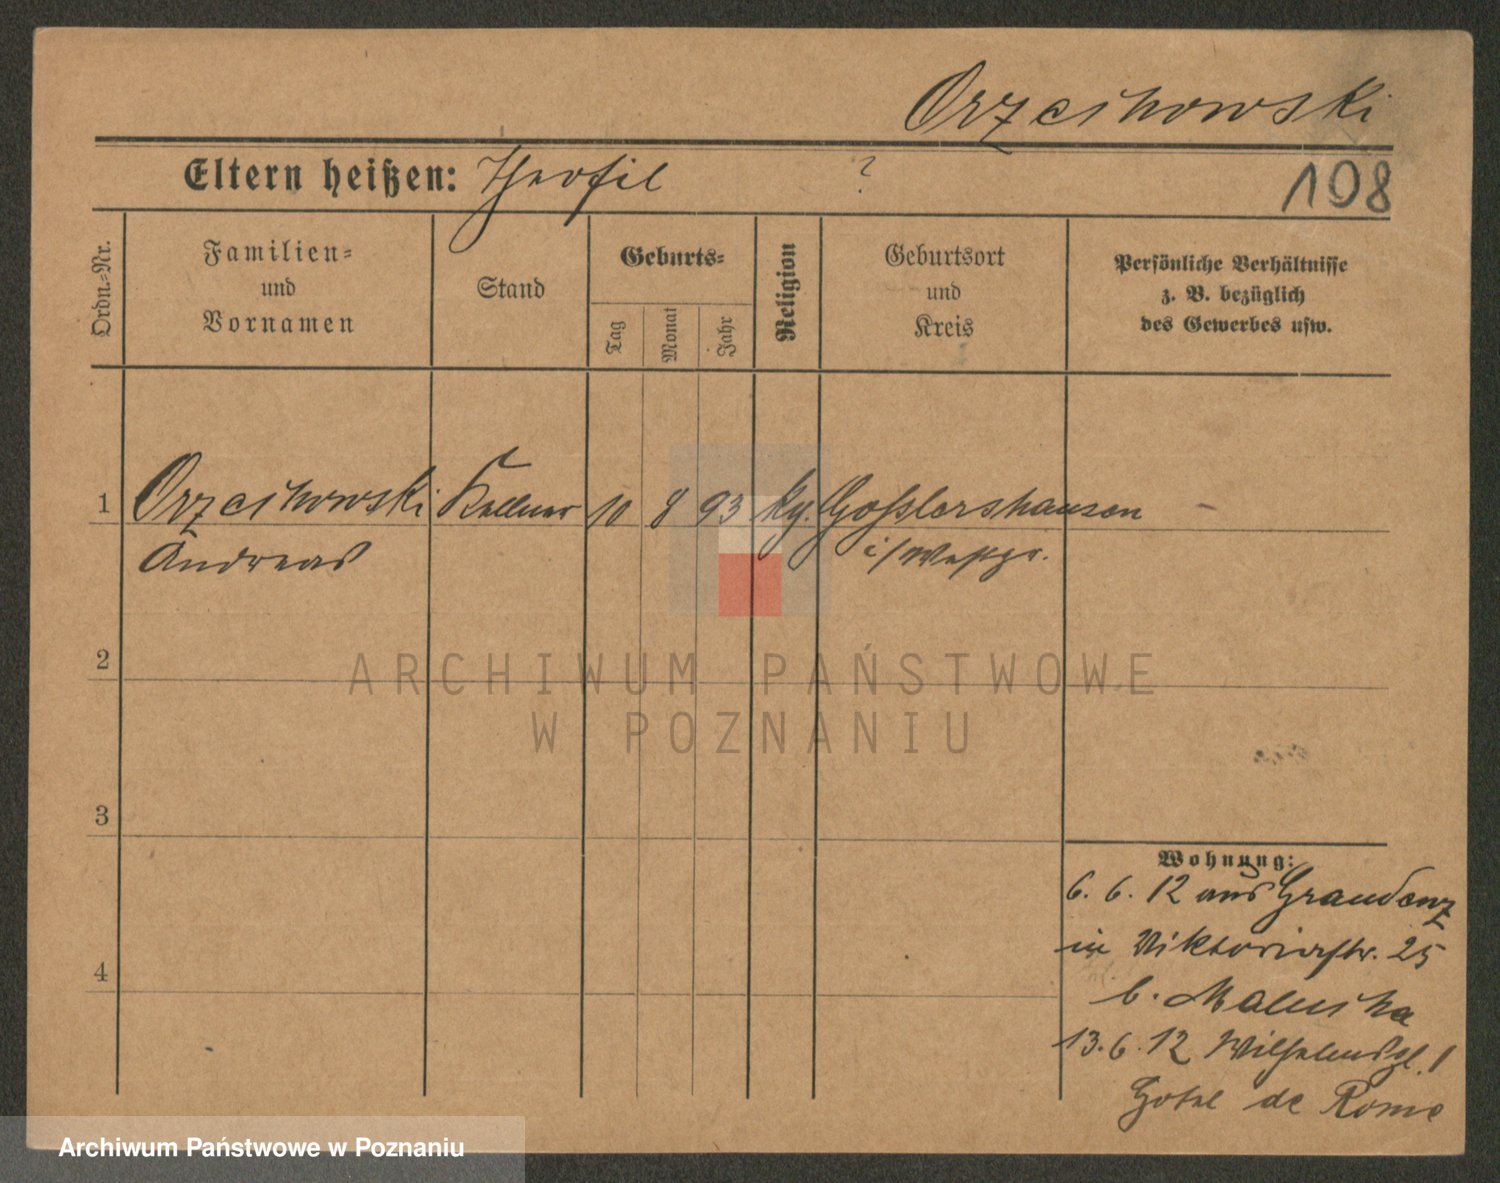 Orzechowski
Eltern heißen: Theofil ?
198
Ordn.-Nr.
Familien-
und
Vornamen
Stand
Geburts-
Tag
Monat
Jahr
Religion
Geburtsort
und
Kreis
Persönliche Verhältnisse
z. B. bezüglich
des Gewerbes usw.
1 Orzechowski Kellner 10 8 93 kg. Gosslershausen
Andreas i/Westpr.
2
ARCHIWUM PAŃSTWOWE
W POZNANIU
3
Wohnung:
6. 6. 12 aus Graudenz
in Viktoriastr. 25
4
b. Maluska
13. 6. 12 Wilhelmspl. 1
Hotel de Rome
Archiwum Państwowe w Poznaniu